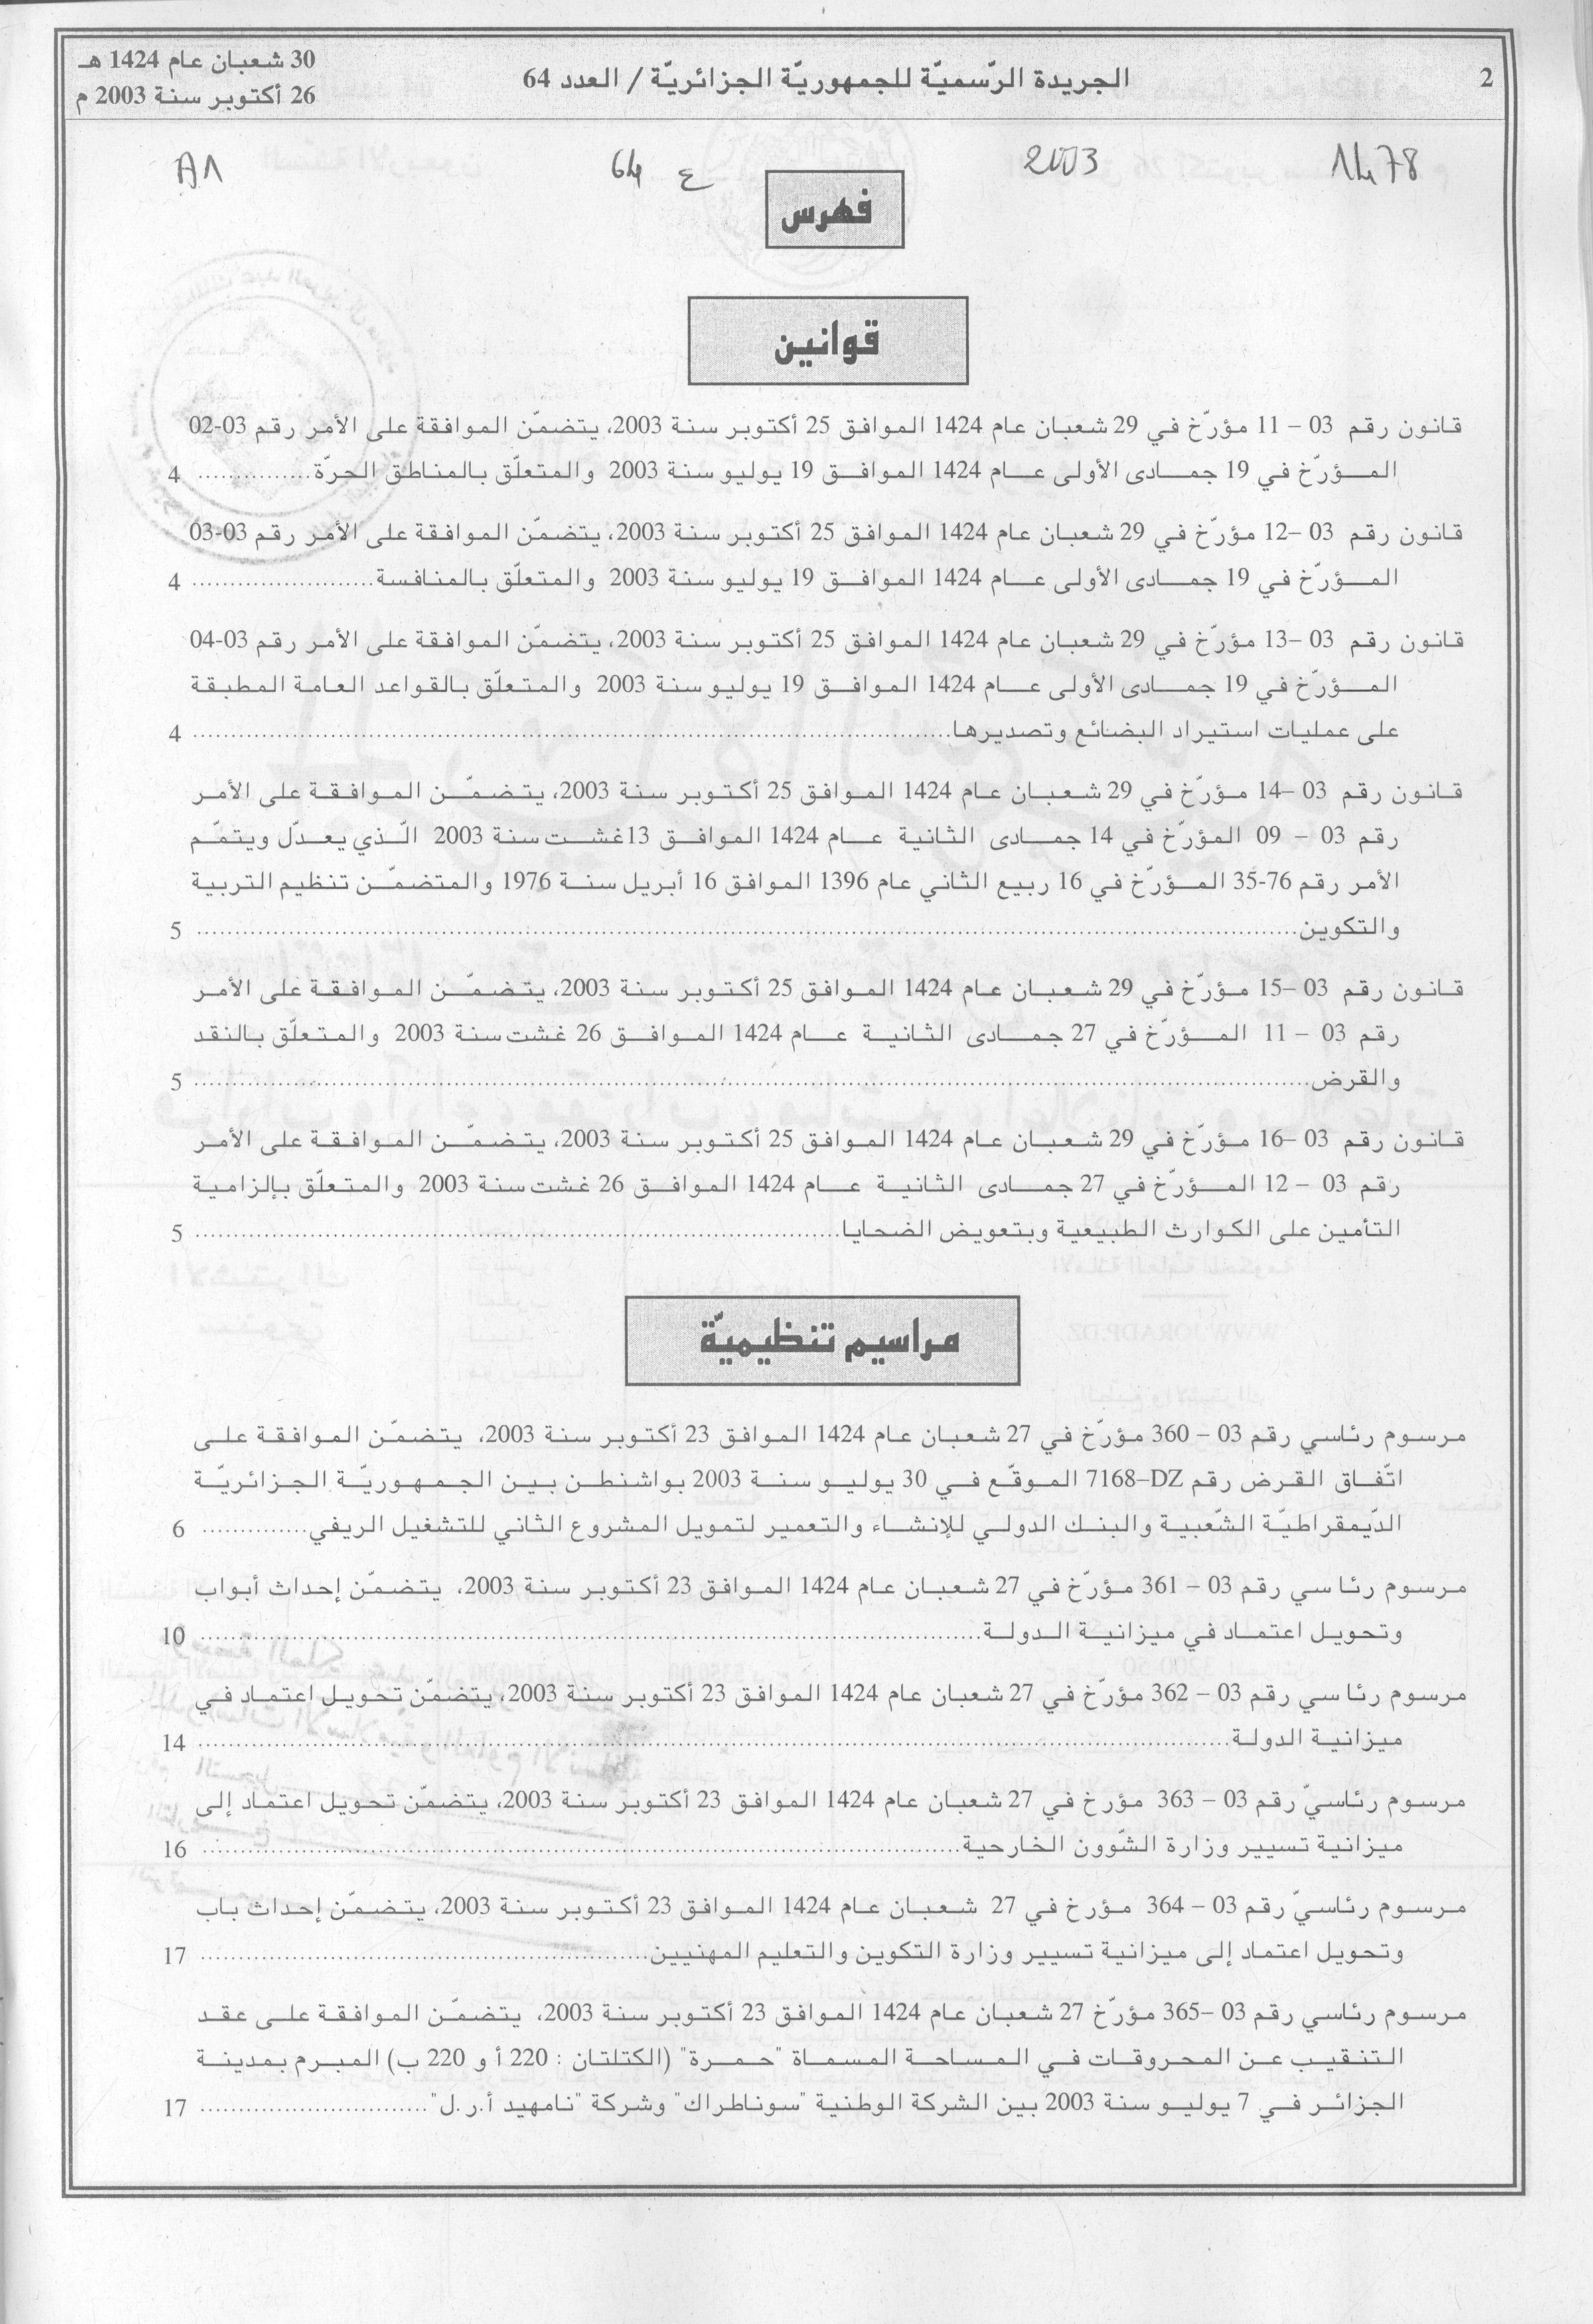 2
الجريدة الرّسميّة للجمهوريّة الجزائريّة / العدد 64
30 شعبان عام 1424 هـ
26 أكتوبر سنة 2003 م
1478
2003
ع 64
A1
فهرس
قوانين
قانون رقم 03 – 11 مؤرّخ في 29 شعبان عام 1424 الموافق 25 أكتوبر سنة 2003، يتضمّن الموافقة على الأمر رقم 03-02
المؤرّخ في 19 جمادى الأولى عام 1424 الموافق 19 يوليو سنة 2003 والمتعلّق بالمناطق الحرّة............... 4
قانون رقم 03 –12 مؤرّخ في 29 شعبان عام 1424 الموافق 25 أكتوبر سنة 2003، يتضمّن الموافقة على الأمر رقم 03-03
المؤرّخ في 19 جمادى الأولى عام 1424 الموافق 19 يوليو سنة 2003 والمتعلّق بالمنافسة........................ 4
قانون رقم 03 –13 مؤرّخ في 29 شعبان عام 1424 الموافق 25 أكتوبر سنة 2003، يتضمّن الموافقة على الأمر رقم 03-04
المؤرّخ في 19 جمادى الأولى عام 1424 الموافق 19 يوليو سنة 2003 والمتعلّق بالقواعد العامة المطبقة
على عمليات استيراد البضائع وتصديرها........................ 4
قانون رقم 03 –14 مؤرّخ في 29 شعبان عام 1424 الموافق 25 أكتوبر سنة 2003، يتضمّن الموافقة على الأمر
رقم 03 – 09 المؤرّخ في 14 جمادى الثانية عام 1424 الموافق 13غشت سنة 2003 الّذي يعدّل ويتمّم
الأمر رقم 76-35 المؤرّخ في 16 ربيع الثاني عام 1396 الموافق 16 أبريل سنة 1976 والمتضمّن تنظيم التربية
والتكوين........................ 5
قانون رقم 03 –15 مؤرّخ في 29 شعبان عام 1424 الموافق 25 أكتوبر سنة 2003، يتضمّن الموافقة على الأمر
رقم 03 – 11 المؤرّخ في 27 جمادى الثانية عام 1424 الموافق 26 غشت سنة 2003 والمتعلّق بالنقد
والقرض........................ 5
قانون رقم 03 –16 مؤرّخ في 29 شعبان عام 1424 الموافق 25 أكتوبر سنة 2003، يتضمّن الموافقة على الأمر
رقم 03 – 12 المؤرّخ في 27 جمادى الثانية عام 1424 الموافق 26 غشت سنة 2003 والمتعلّق بإلزامية
التأمين على الكوارث الطبيعية وبتعويض الضحايا........................ 5
مراسيم تنظيميّة
مرسوم رئاسي رقم 03 – 360 مؤرّخ في 27 شعبان عام 1424 الموافق 23 أكتوبر سنة 2003، يتضمّن الموافقة على
اتّفاق القرض رقم 7168–DZ الموقّع في 30 يوليو سنة 2003 بواشنطن بين الجمهوريّة الجزائريّة
الدّيمقراطيّة الشّعبية والبنك الدولي للإنشاء والتعمير لتمويل المشروع الثاني للتشغيل الريفي.............. 6
مرسوم رئاسي رقم 03 – 361 مؤرّخ في 27 شعبان عام 1424 الموافق 23 أكتوبر سنة 2003، يتضمّن إحداث أبواب
وتحويل اعتماد في ميزانية الدولة........................ 10
مرسوم رئاسي رقم 03 – 362 مؤرّخ في 27 شعبان عام 1424 الموافق 23 أكتوبر سنة 2003، يتضمّن تحويل اعتماد في
ميزانية الدولة........................ 14
مرسوم رئاسيّ رقم 03 – 363 مؤرخ في 27 شعبان عام 1424 الموافق 23 أكتوبر سنة 2003، يتضمّن تحويل اعتماد إلى
ميزانية تسيير وزارة الشّوون الخارجية........................ 16
مرسوم رئاسيّ رقم 03 – 364 مؤرخ في 27 شعبان عام 1424 الموافق 23 أكتوبر سنة 2003، يتضمّن إحداث باب
وتحويل اعتماد إلى ميزانية تسيير وزارة التكوين والتعليم المهنيين........................ 17
مرسوم رئاسي رقم 03 –365 مؤرّخ 27 شعبان عام 1424 الموافق 23 أكتوبر سنة 2003، يتضمّن الموافقة على عقد
التنقيب عن المحروقات في المساحة المسماة "حمرة" (الكتلتان : 220 أ و 220 ب) المبرم بمدينة
الجزائر في 7 يوليو سنة 2003 بين الشركة الوطنية "سوناطراك" وشركة "نامهيد أ.ر.ل"........................ 17